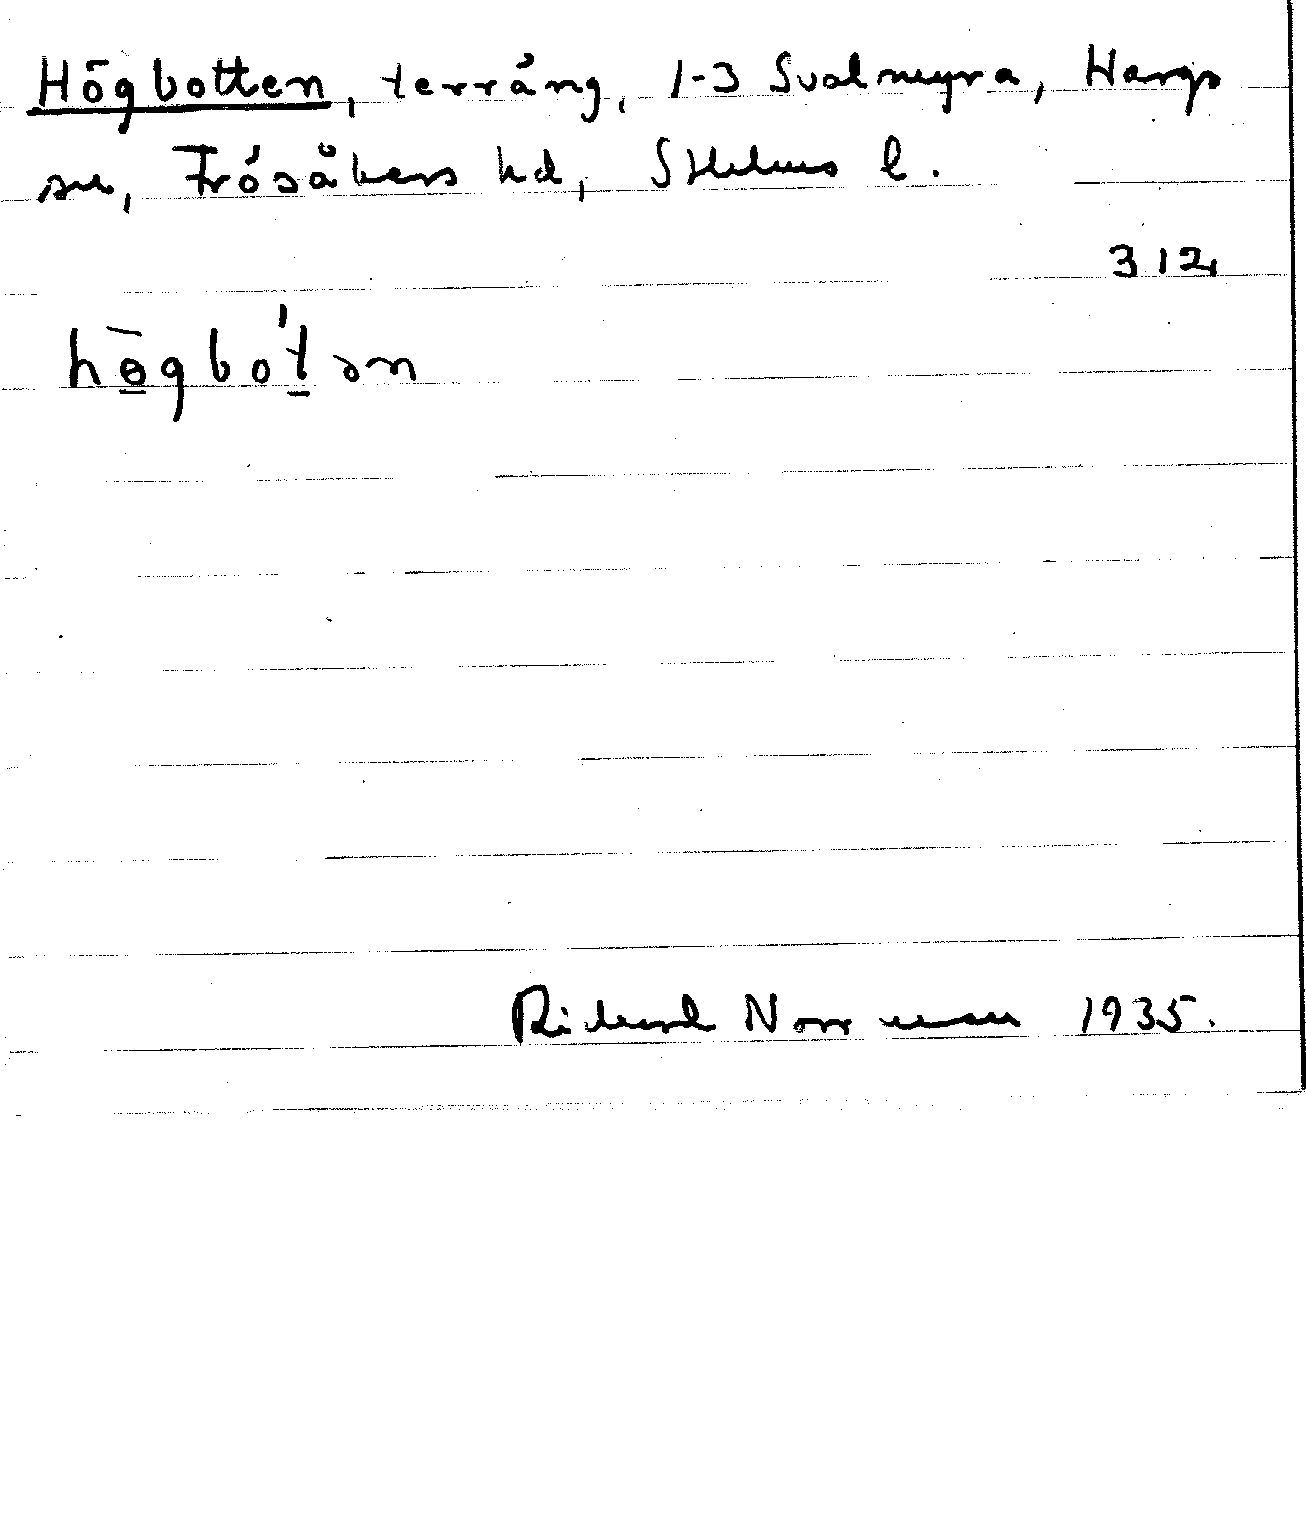 Högbotten, terräng, 1-3 Svalmyra, Hargs
sn, Frösåkers hd, Sthlms l.
312
hö̲gbo't̲ən
Richard Norrman 1935.